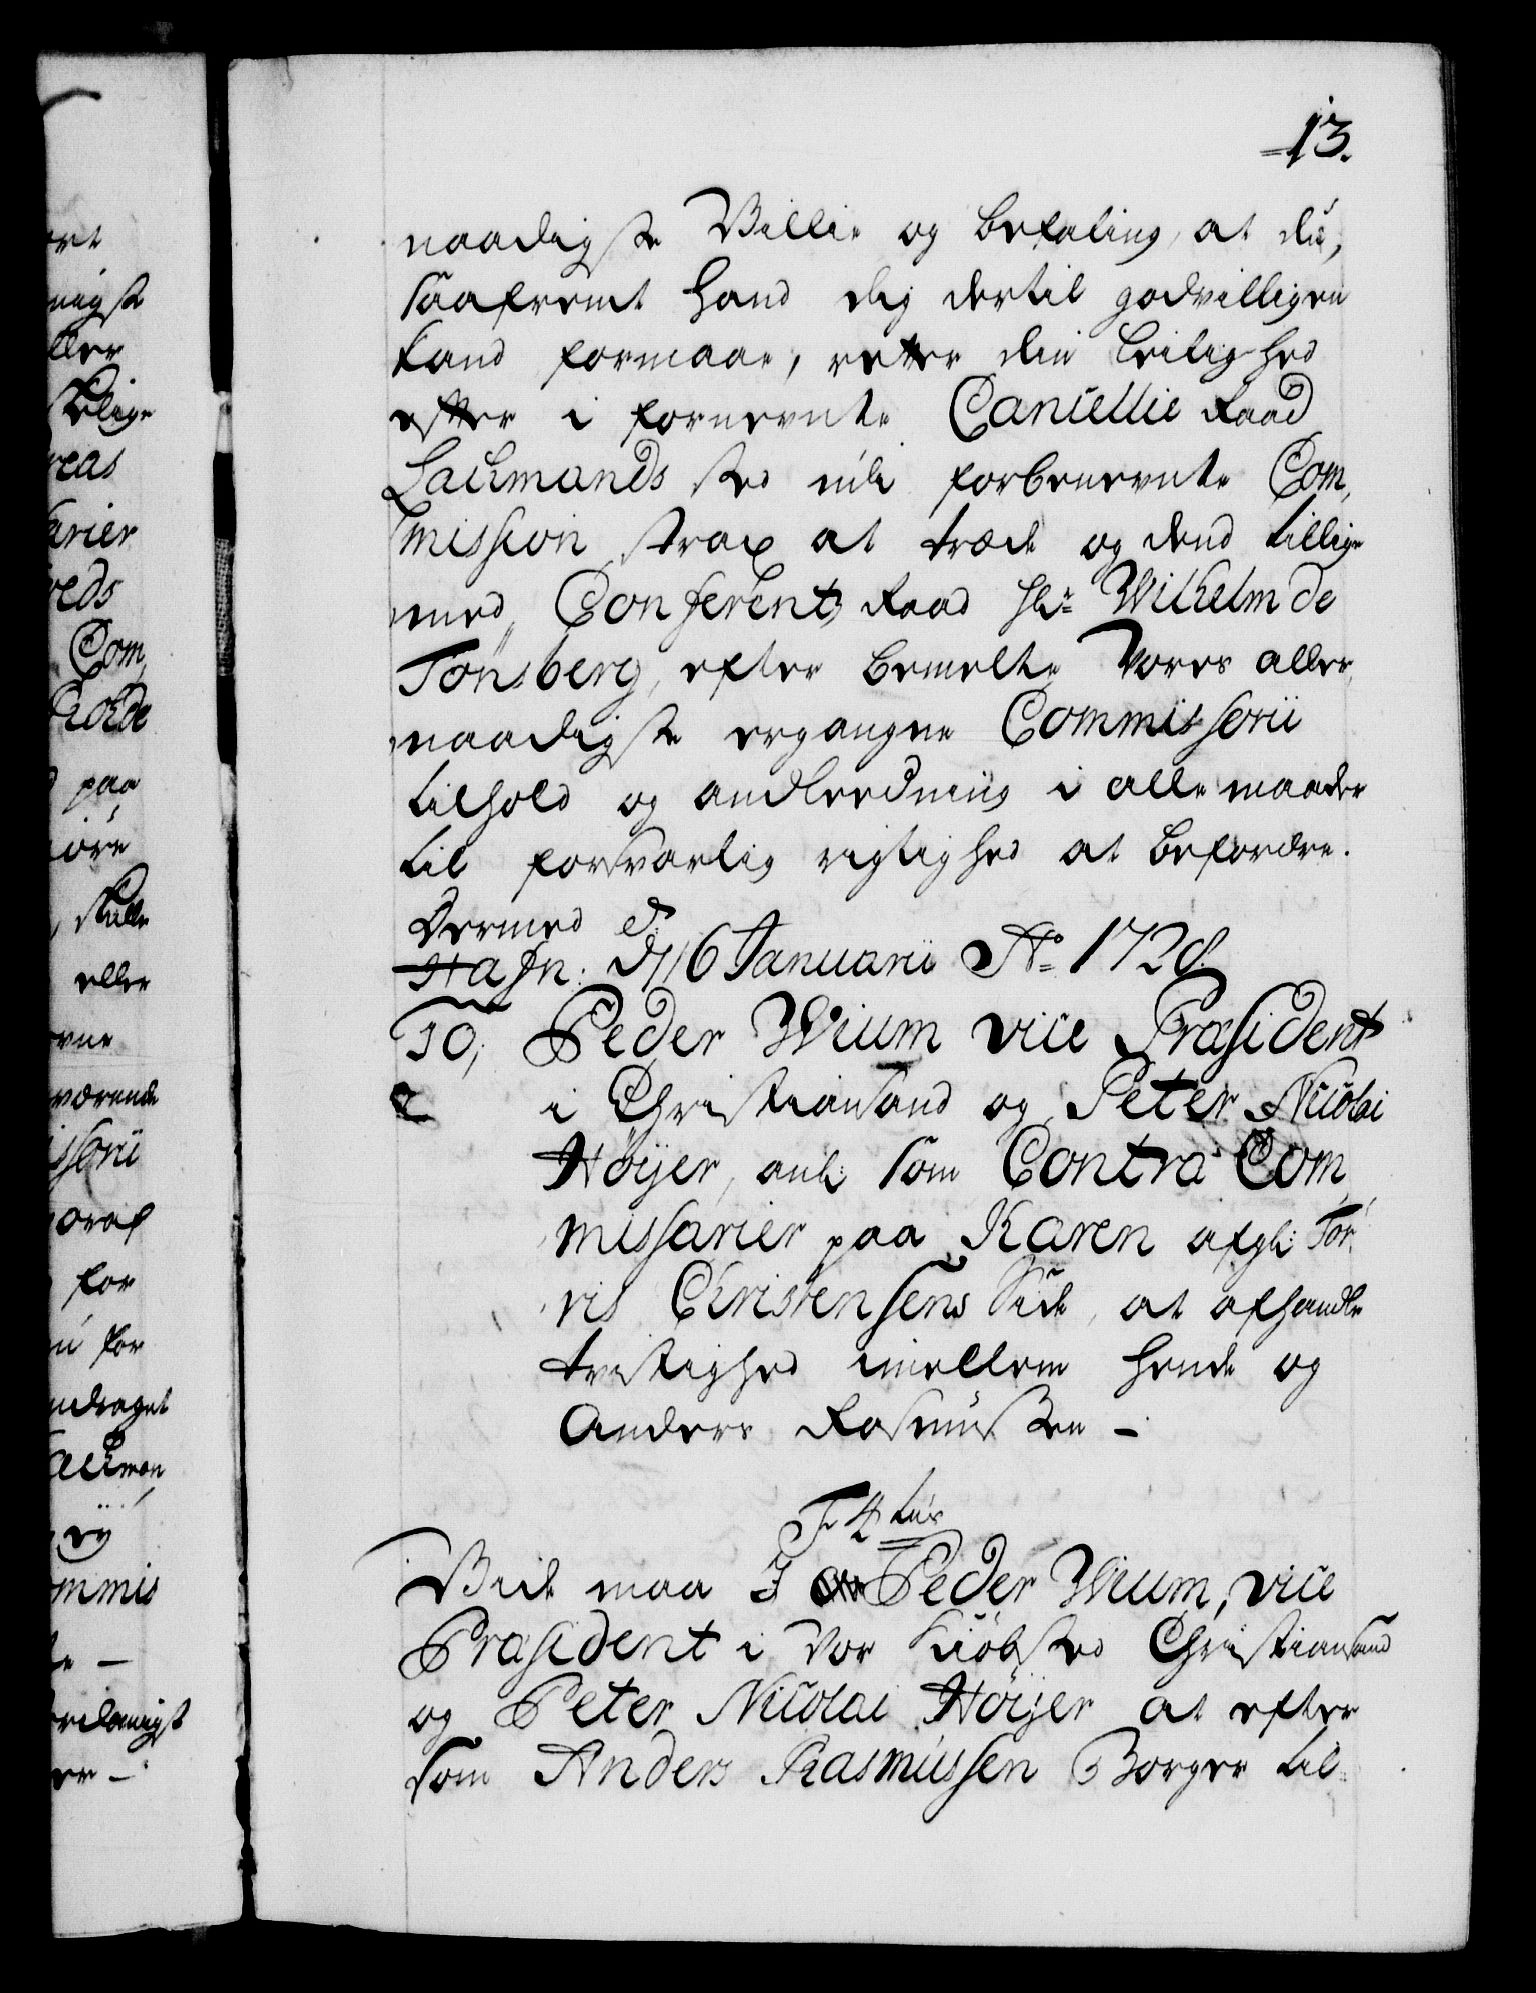 13.
naadigste Villie og befaling, at du,
saafremt hand dig dertil godvilligen
kand formaae, retter din Leilighed
efter i fornevnte Cancellie Raad
Lachmands sted udi forbenevnte Com„
mission strax at træde og dend tillige
med Conferentz Raad Hr: Wilhelm de
Tønsberg, efter bemelte Vores aller„
naadigste ergangne Commissorii
tilhold og andleedning i alle maader
til forsvarlig rigtighed at befordre.
Dermed e
Hafn: d 16 Januarii Ao 1728
10, Peder Wium vice Præsident
i Christiansand og Peter Nicolai
Høyer, anl: som Contra Com„
missarier paa Karen afgl: Tor„
ris Christensens Side, at afhandle
tvistighed imellem hende og
Anders Rasmussen –
F 4 tus
Viide maa I Peder Wium, vice
Præsident i Vor Kiøbsted Christiansand
og Peter Nicolai Høyer at efter
som Anders Rasmussen Borger til